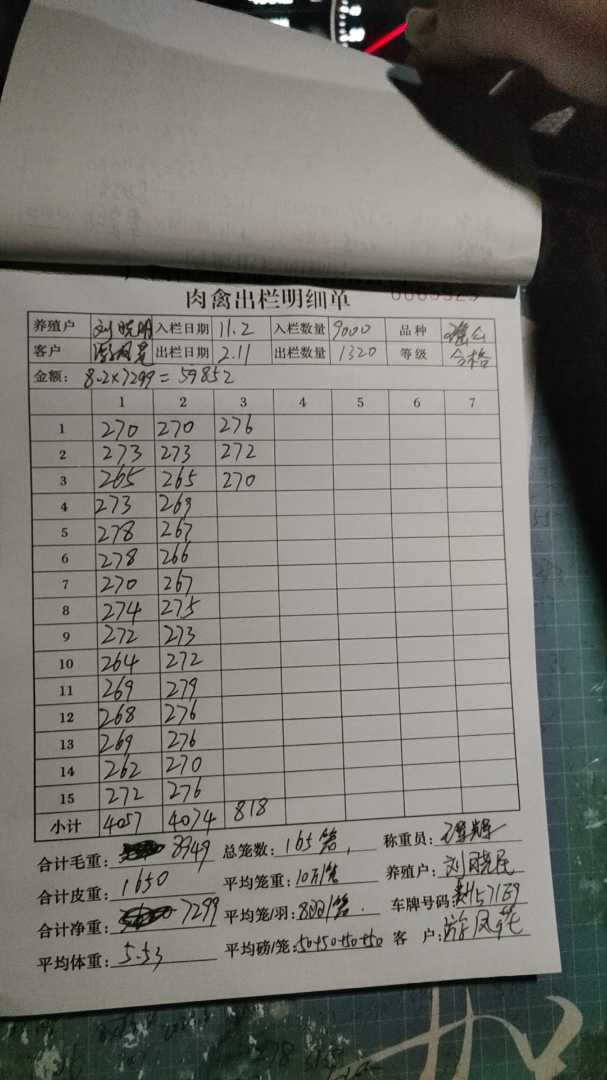 肉禽出栏明细单
养殖户 刘晓明 入栏日期 11.2 入栏数量 9000 品种
客户 出栏日期 2.11 出栏数量 1320 等级 合格
金额: 8.2×7299=59852
1 2 3 4 5 6 7
1 270 270 276
2 273 273 272
3 265 265 270
4 273 269
5 278 267
6 278 266
7 270 267
8 274 275
9 272 273
10 264 272
11 269 279
12 268 276
13 269 276
14 262 270
15 272 276
小计 4057 4074 818
合计毛重: 8949 总笼数: 165笼 称重员:
合计皮重: 1650 平均笼重: 10 养殖户: 刘晓民
合计净重: 7299 平均笼/羽: 8 车牌号码:
平均体重: 5.53 平均磅/笼: 50+50+50+50 客 户: